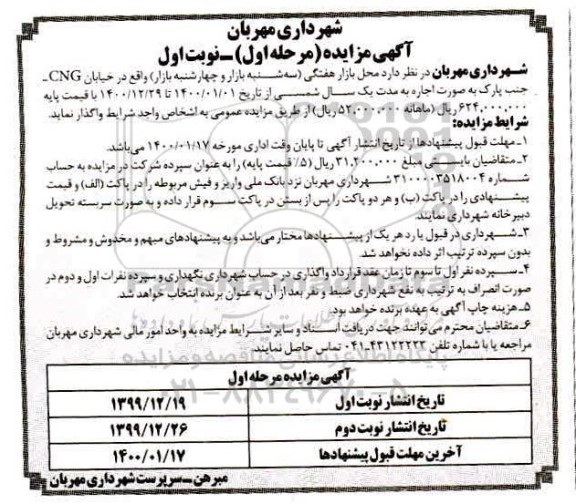 شهرداری مهربان
آگهی مزایده (مرحله اول) ـ نوبت اول
شهرداری مهربان در نظر دارد محل بازار هفتگی (سه‌شنبه بازار و چهارشنبه بازار) واقع در خیابان CNG ـ
جنب پارک به صورت اجاره به مدت یک سال شمسی از تاریخ ۱۴۰۰/۰۱/۰۱ تا ۱۴۰۰/۱۲/۲۹ با قیمت پایه
۶۲۴,۰۰۰,۰۰۰ ریال (ماهانه ۵۲,۰۰۰,۰۰۰ ریال) از طریق مزایده عمومی به اشخاص واجد شرایط واگذار نماید.
شرایط مزایده:
۱ـ مهلت قبول پیشنهادها از تاریخ انتشار آگهی تا پایان وقت اداری مورخه ۱۴۰۰/۰۱/۱۷ می‌باشد.
۲ـ متقاضیان بایستی مبلغ ۳۱,۲۰۰,۰۰۰ ریال (۵٪ قیمت پایه) را به عنوان سپرده شرکت در مزایده به حساب
شماره ۳۱۰۰۰۰۳۵۱۸۰۰۴ شهرداری مهربان نزد بانک ملی واریز و فیش مربوطه را در پاکت (الف) و قیمت
پیشنهادی را در پاکت (ب) و هر دو پاکت را پس از بستن در پاکت سوم قرار داده و به صورت سربسته تحویل
دبیرخانه شهرداری نمایند.
۳ـ شهرداری در قبول یا رد هر یک از پیشنهادها مختار می‌باشد و به پیشنهادهای مبهم و مخدوش و مشروط و
بدون سپرده ترتیب اثر داده نخواهد شد.
۴ـ سپرده نفر اول تا سوم تا زمان عقد قرارداد واگذاری در حساب شهرداری نگهداری و سپرده نفرات اول و دوم در
صورت انصراف به ترتیب به نفع شهرداری ضبط و نفر بعد از آن به عنوان برنده انتخاب خواهد شد.
۵ـ هزینه چاپ آگهی به عهده برنده خواهد بود.
۶ـ متقاضیان محترم می‌توانند جهت دریافت اسناد و سایر شرایط مزایده به واحد امور مالی شهرداری مهربان
مراجعه یا با شماره تلفن ۰۴۱-۴۳۱۲۲۲۲۲ تماس حاصل نمایند.
آگهی مزایده مرحله اول
تاریخ انتشار نوبت اول ۱۳۹۹/۱۲/۱۹
تاریخ انتشار نوبت دوم ۱۳۹۹/۱۲/۲۶
آخرین مهلت قبول پیشنهادها ۱۴۰۰/۰۱/۱۷
میرهن ـ سرپرست شهرداری مهربان